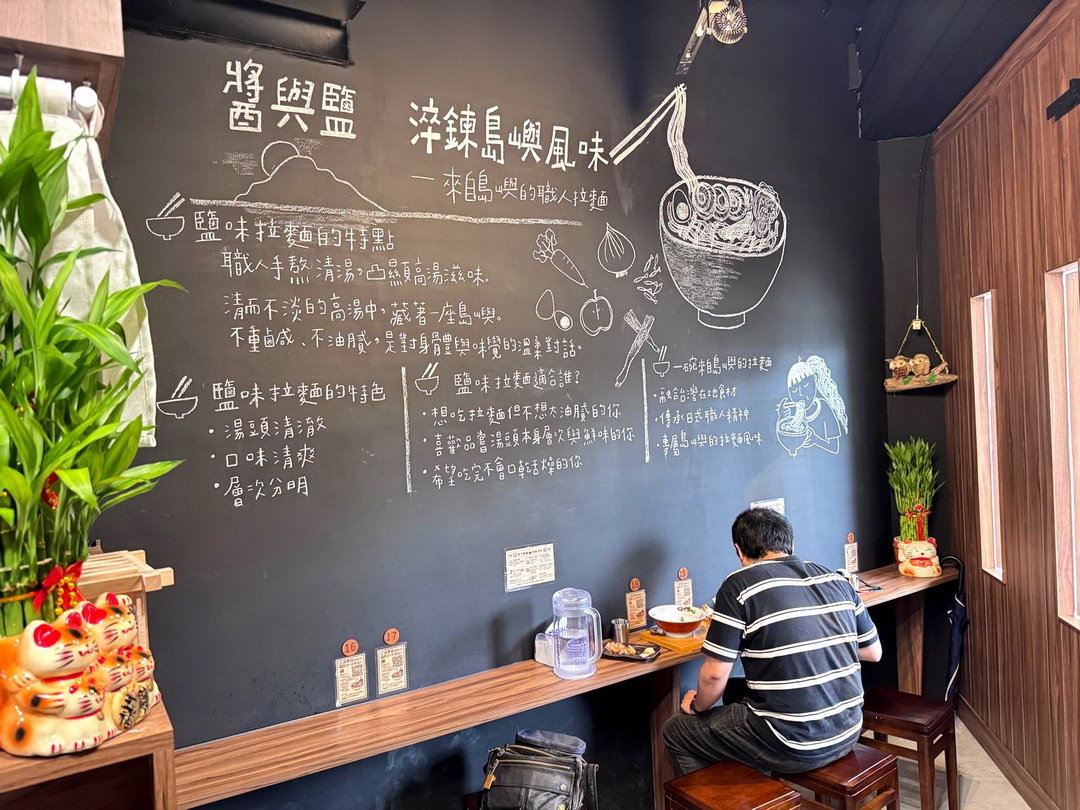 醬與鹽
淬鍊島嶼風味
一來自島嶼的職人拉麵
鹽味拉麵的特點
職人手熬清湯,凸顯高湯滋味。
清而不淡的高湯中,藏著一座島嶼。
不重鹹感、不油膩,是對身體與味覺的溫柔對話。
鹽味拉麵的特色
・湯頭清澈
・口味清爽
・層次分明
鹽味拉麵適合誰?
・想吃拉麵但不想太油膩的你
・喜歡品嘗湯頭本身層次與鮮味的你
・希望吃完不會口乾舌燥的你
一碗來自島嶼的拉麵
・融合台灣在地食材
・傳承日式職人精神
・專屬島嶼的拉麵風味
16
17
18
19